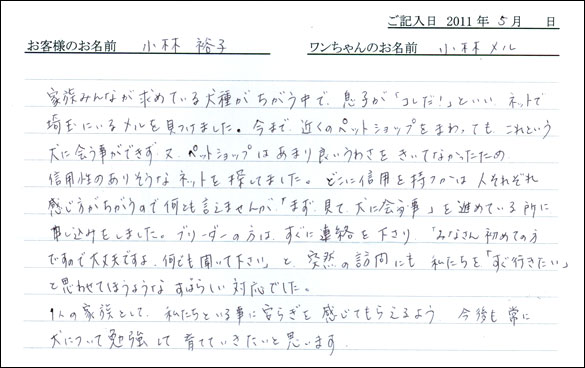 ご記入日 2011年 5月 日
お客様のお名前 小林 裕子 ワンちゃんのお名前 小林 メル
家族みんなが求めている犬種がちがう中で、息子が「コレだ!」といい ネットで
埼玉にいるメルを見つけました。今まで、近くのペットショップをまわっても これという
犬に会う事ができず、又、ペットショップはあまり良いうわさをきいてなかったため
信用性のありそうなネットを探してました。どこに信用を持つかは人それぞれ
感じ方がちがうので何とも言えませんが、「まず、見て、犬に会う事」を進めている所に
申し込みをしました。ブリーダーの方は、すぐに連絡を下さり 「みなさん初めての方
ですので大丈夫ですよ、何でも聞いて下さい」と、突然の訪問にも 私たちを「すぐ行きたい」
と思わせてほうような すばらしい対応でした。
1人の家族として、私たちといる事に安らぎを感じてもらえるよう 今後も常に
犬について勉強して育てていきたいと思います。